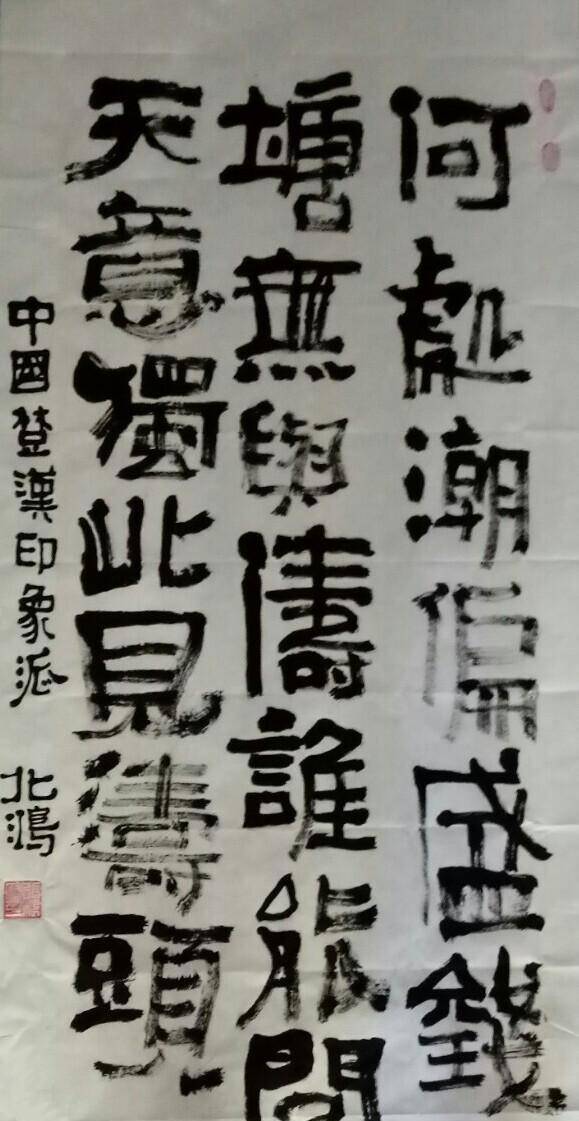 何處潮偏盛錢
塘無與儔誰能問
天意獨此見濤頭
中國楚漢印象派 北鴻